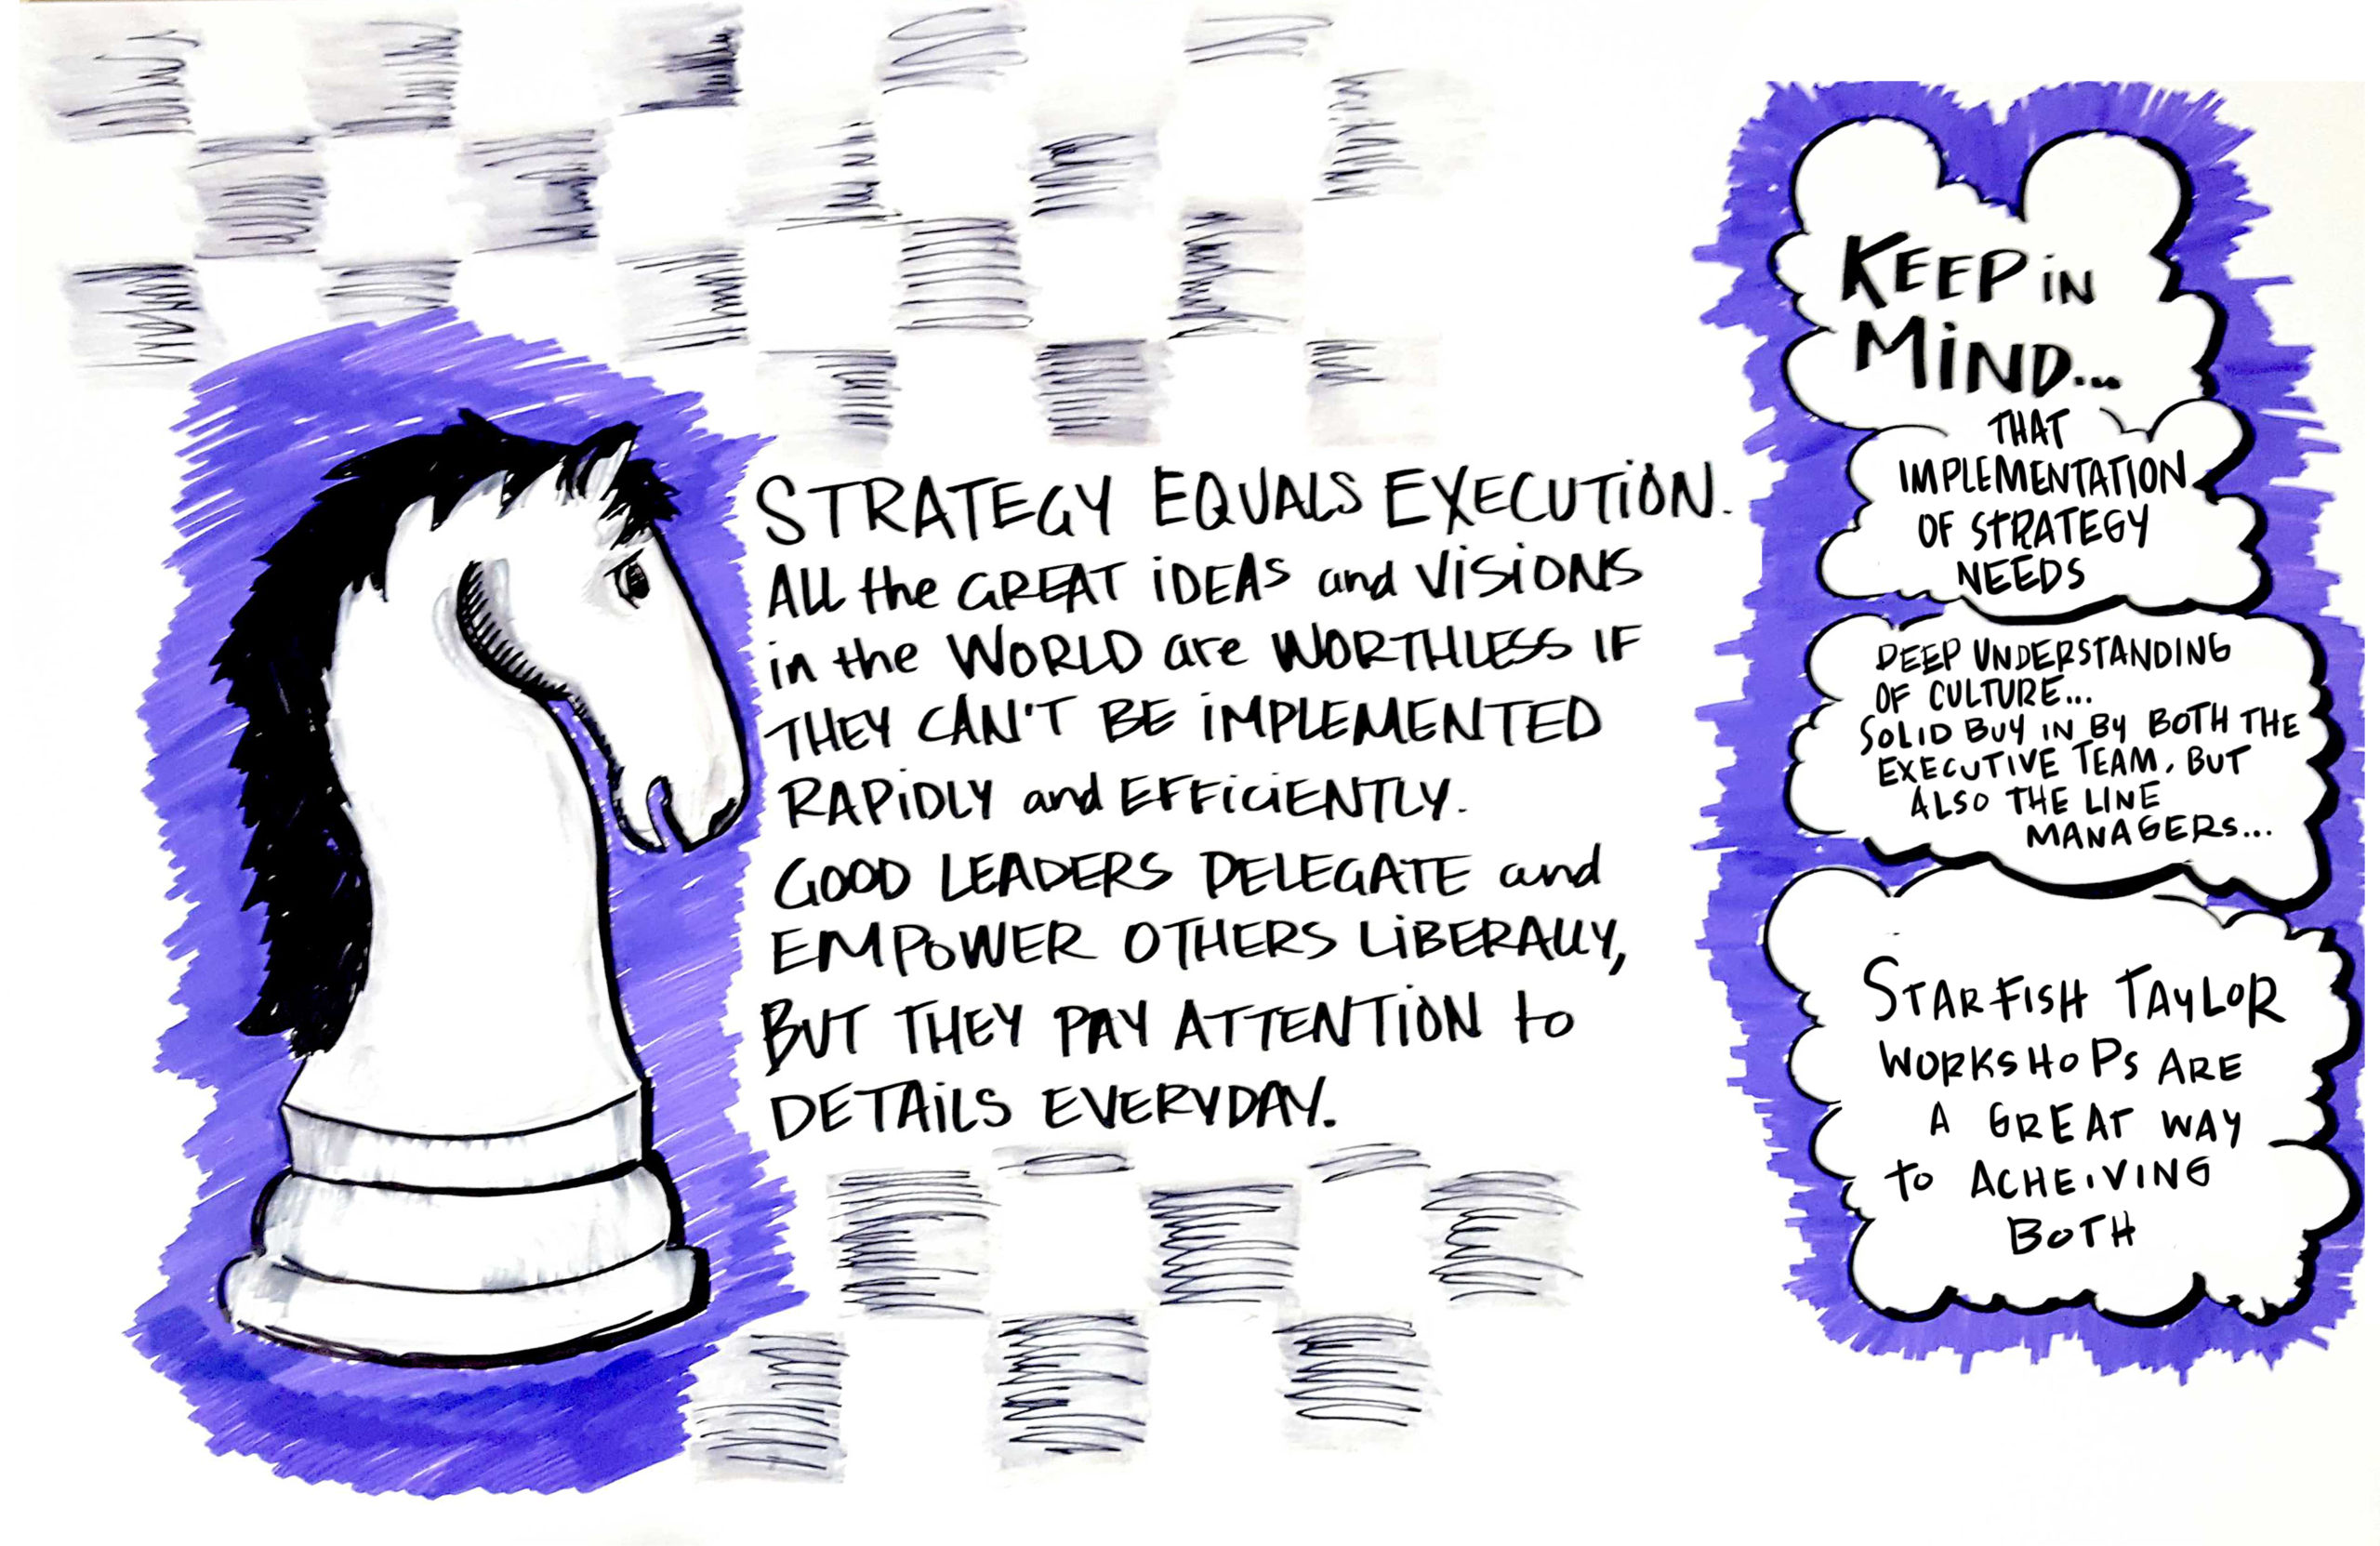 STRATEGY EQUALS EXECUTION.
ALL the GREAT iDEAS and VISIONS
in the WORLD are WORTHLESS IF
THEY CAN'T BE IMPLEMENTED
RAPIDLY and EFFICIENTLY.
GOOD LEADERS DELEGATE and
EMPOWER OTHERS LIBERALLY,
BUT THEY PAY ATTENTION to
DETAILS EVERYDAY.
KEEP iN
MIND...
THAT
IMPLEMENTATION
OF STRATEGY
NEEDS
DEEP UNDERSTANDING
OF CULTURE...
SOLID BUY IN BY BOTH THE
EXECUTIVE TEAM, BUT
ALSO THE LINE
MANAGERS...
STARFISH TAYLOR
WORKSHOPS ARE
A GREAT WAY
to ACHEIVING
BOTH